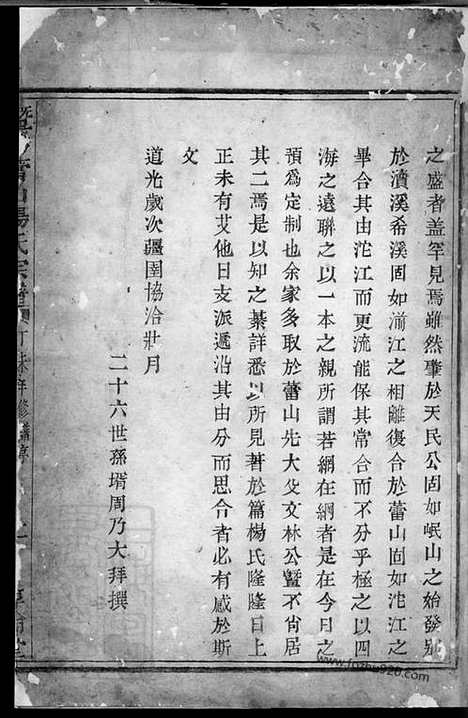 之盛者盖罕見焉雖然肇於天民公固如岷山之始發别
於瀆溪希溪固如湔江之相離復合於蕾山固如沱江之
畢合其由沱江而更流能保其常合而不分乎極之以四
海之遠聯之以一本之親所謂若網在綱者是在今日之
預為定制也余家多取於蕾山先大父文林公暨不肖居
其二焉是以支之綦詳悉以所見著於篇楊氏隆隆日上
正未有艾他日支派遞沿其由分而思合者必有感於斯
文
道光歲次疆圉協洽壯月
二十六世孫壻周乃大拜撰
山楊氏宗譜
丁未年修
www.fozhu920.com